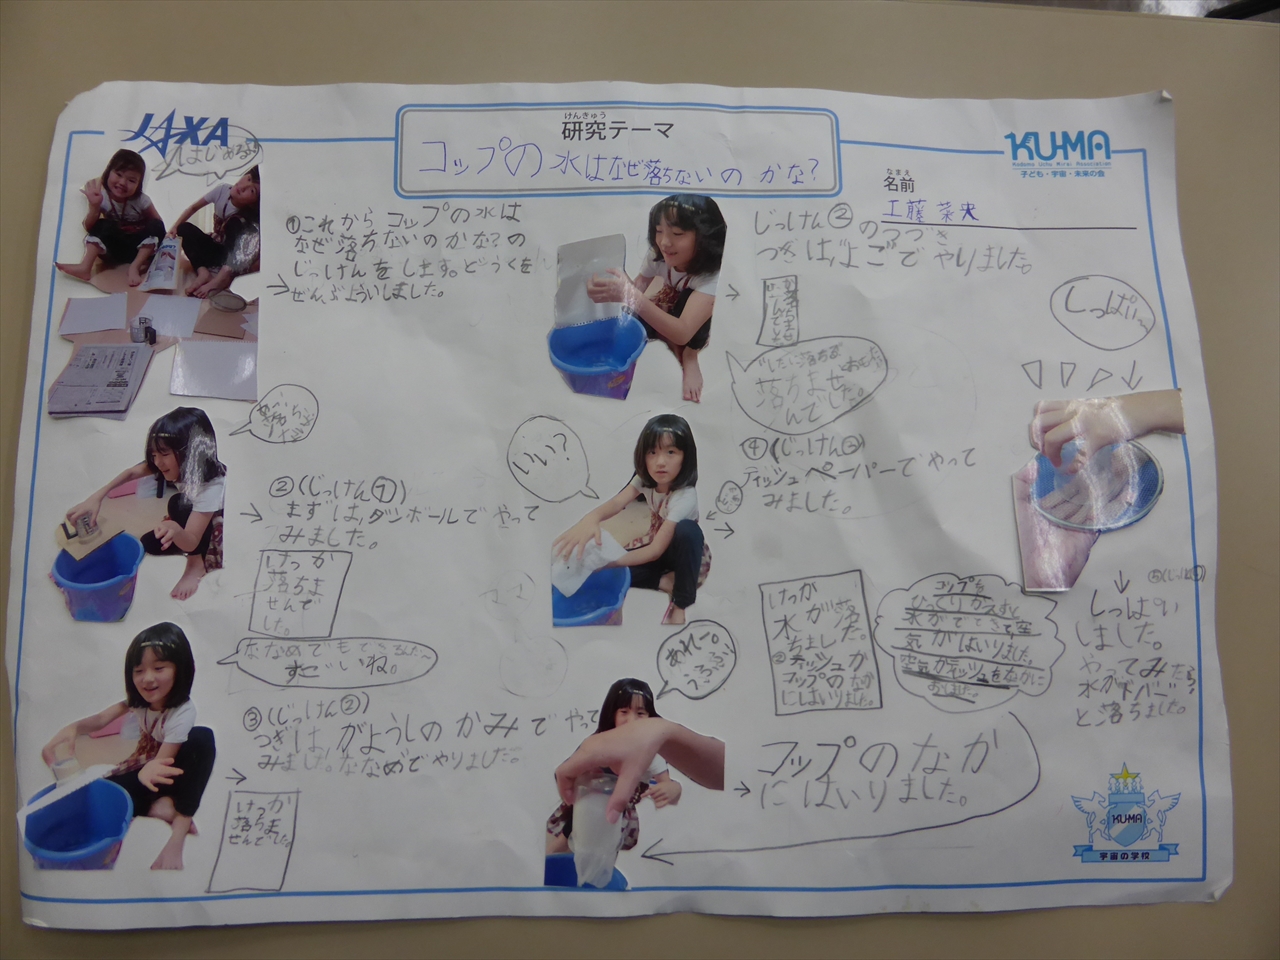 JAXA
けんきゅう
研究テーマ
コップの水はなぜ落ちないのかな?
KU-MA
Kodomo Uchu Mirai Association
子ども・宇宙・未来の会
なまえ
名前
工藤菜央
はじめるよ
①これからコップの水は
なぜ落ちないのかな?の
じっけんをします。どうぐを
ぜんぶよういしました。
②(じっけん①)
まずは、ダンボールでやって
みました。
けっか
落ちま
せんで
した。
ななめでもできるんだ〜
すごいね。
③(じっけん②)
つぎは、がようしのかみでやって
みました。ななめでやりました。
けっか
落ちま
せんでした。
じっけん②のつづき
つぎは、よこでやりました。
落ちませ
んでした。
いい?
④(じっけん③)
ティッシュペーパーでやって
みました。
けっか
水が落
ちました。
②ティッシュが
コップのなか
にはいりました。
コップを
ひっくりかえすと
水がでてきて、空
気がはいりました。
空気がティッシュをなかに
おしました。
あれー。
コップのなか
にはいりました。
しっぱい〜
しっぱい
しました。
やってみたら
水がドバー
と落ちました。
KU-MA
宇宙の学校